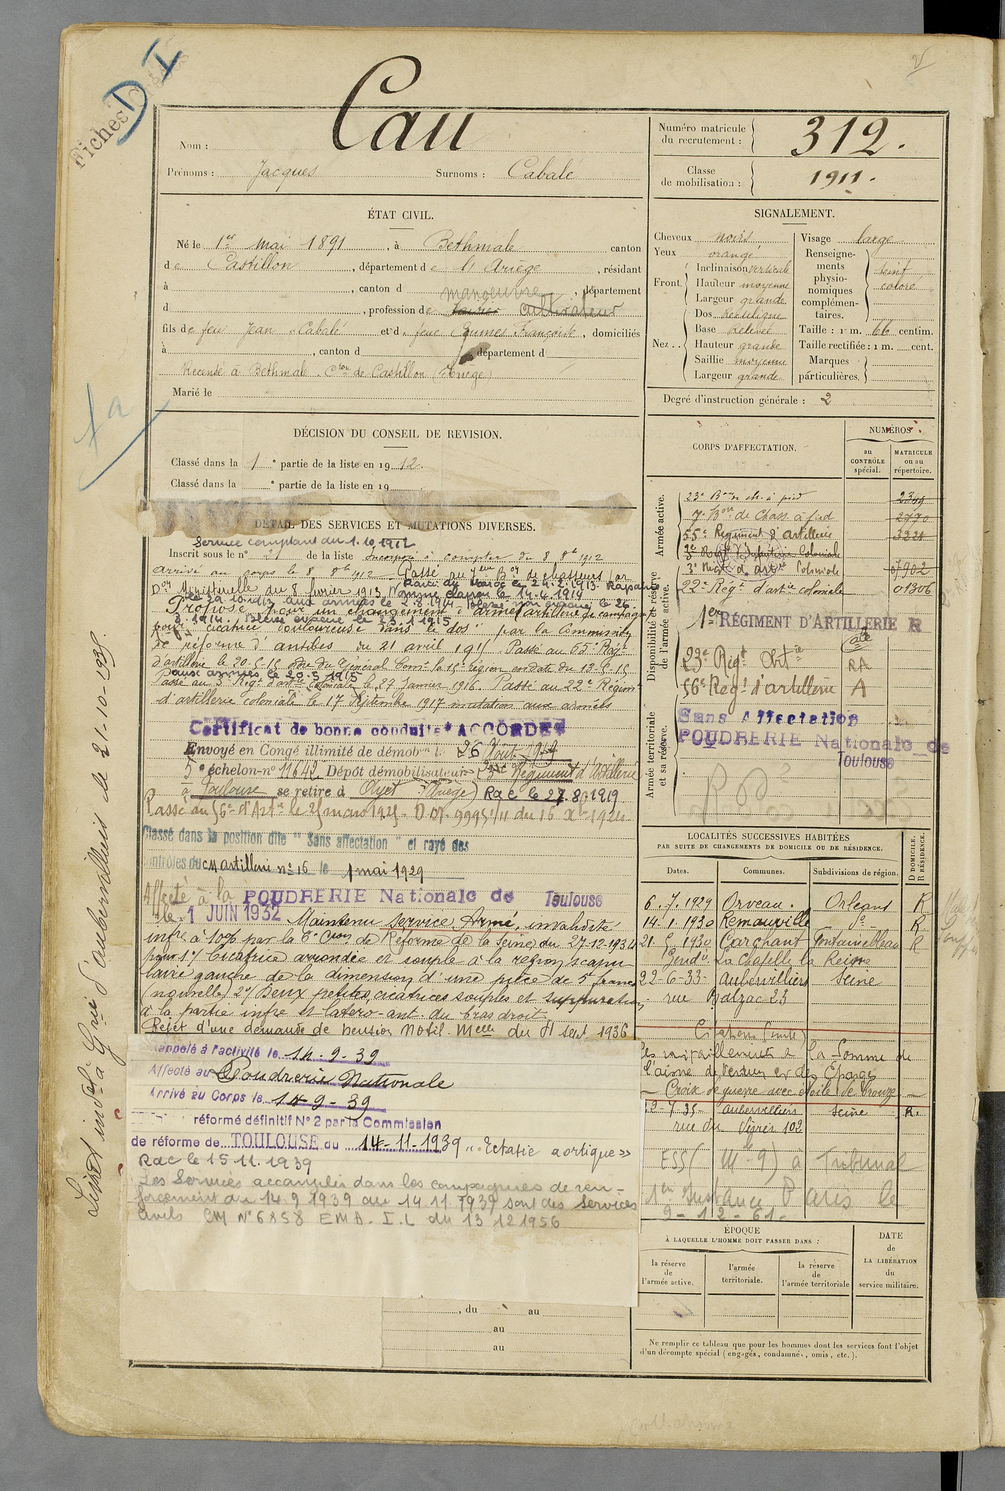 Fiches
D I
Nom : Cau
Prénoms : Jacques Surnoms : Cabalé
Numéro matricule du recrutement : 312.
Classe de mobilisation : 1911.
ÉTAT CIVIL.
Né le 1er mai 1891, à Bethmale canton
de Castillon, département de l'Ariège, résidant
à , canton d , département
manoeuvre
d , profession de cultivateur
fils de feu Jean Cabalé et de feue Françoise, domiciliés
à , canton d département d
Recensé à Bethmale. Cton de Castillon (Ariège)
Marié le
SIGNALEMENT.
Cheveux noirs
Yeux orangé
Front. Inclinaison verticale
Hauteur moyenne
Largeur grande
Nez . . Dos
Base relevée
Hauteur grande
Saillie moyenne
Largeur grande
Visage large
Renseignements physionomiques complémentaires. teint coloré
Taille : 1 m. 66 centim.
Taille rectifiée : 1 m. cent.
Marques particulières.
Degré d'instruction générale : 2
DÉCISION DU CONSEIL DE REVISION.
Classé dans la 1e partie de la liste en 1912.
Classé dans la e partie de la liste en 19
CORPS D'AFFECTATION.
NUMÉROS
au CONTRÔLE spécial.
MATRICULE ou au répertoire.
Armée active.
23e à pied 2349
7e Bon de Chass. à pied 2770
55e Régiment d'artillerie
3e Régt d'artie Coloniale 07902
Disponibilité et réserve de l'armée active.
22e Régt d'artie coloniale 01306
1er RÉGIMENT D'ARTILLERIE R
23e Régt Artie RA
56e Régt d'artillerie A
Armée territoriale et sa réserve.
Sans Affectation
POUDRERIE Nationale de
Toulouse
DÉTAIL DES SERVICES ET MUTATIONS DIVERSES.
Service comptant du 1.10.1912
Inscrit sous le n° 21 de la liste incorporé à compter du 8 8bre 1912
Arrivé au corps le 8 8bre 1912. Passé au Bon de chasseurs par
Don Ministérielle du 8 février 1913
Proposé pour un changement d'arme artillerie de campagne
pour "cicatrice douloureuse dans le dos" par la Commission
de réforme d'Antibes du 21 avril 1915 Passé au 55e Régt
d'artillerie le 20-5-15
Passé au 3e Régt d'artie Coloniale le 27 Janvier 1916. Passé au 22e Régiment
d'artillerie coloniale le 17 septembre 1917 mutation aux armées
Certificat de bonne conduite "ACCORDÉ"
Envoyé en Congé illimité de démobon le 26 Août 1919
5e échelon-n° 11642 Dépôt démobilisateur Régiment d'Artillerie
à Toulouse se retire à Ayet (Ariège) Rac le 27.8.1919
Passé au 56e d'Artie le 25 mars 1925.
Classé dans la position dite "Sans affectation" et rayé des
contrôles du CM artillerie n° 16 le 1 mai 1929
Affecté à la POUDRERIE Nationale de Toulouse
le 1 JUIN 1932 Maintenu Service Armé, invalidité
infre à 10% par la Con de Réforme de la Seine du 27-12-1934
pour 1°/ Cicatrice arrondie et souple à la région scapulaire
gauche de la dimension d'une pièce de 5 francs
(nouvelle) 2°/ Deux petites cicatrices souples et
à la partie infre et latéro-ant. du bras droit.
Rejet d'une demande de pension Notif. Melle du 1936
Rappelé à l'activité le 14.9.39
Affecté au Poudrerie Nationale
Arrivé au Corps le 14-9-39
réformé définitif N° 2 par la Commission
de réforme de TOULOUSE du 14-11-1939 "Ectasie aortique"
Rac le 15.11.1939
Les Services accomplis dans les compagnies de ren-
forcement du 14.9.1939 au 14.11.1939 sont des services
civils CM N° 6858 EMA. I.L du 13 12 1956
, du au
au
au
LOCALITÉS SUCCESSIVES HABITÉES
PAR SUITE DE CHANGEMENTS DE DOMICILE OU DE RÉSIDENCE.
Dates. Communes. Subdivisions de région. D DOMICILE. R RÉSIDENCE.
6.7.1929 Orveau Orléans R
14.1.1930 Remauville do R
21.5.1930 Garchant Fontainebleau R
La Chapelle la Reine
22-6-33- Aubervilliers Seine
rue Balzac 23
Citations (suite)
les ravitaillements de la Somme de
l'Aisne de Verdun et des Éparges
Croix de guerre avec étoile de bronze
22-7-35- Aubervilliers Seine R.
rue des Vignes 102
ESS (Mle 9) à Tribunal
1ère Instance Paris le
9-12-61-
ÉPOQUE
À LAQUELLE L'HOMME DOIT PASSER DANS :
la réserve de l'armée active.
l'armée territoriale.
la réserve de l'armée territoriale
DATE de LA LIBÉRATION du service militaire.
Ne remplir ce tableau que pour les hommes dont les services font l'objet
d'un décompte spécial (engagés, condamnés, omis, etc.).